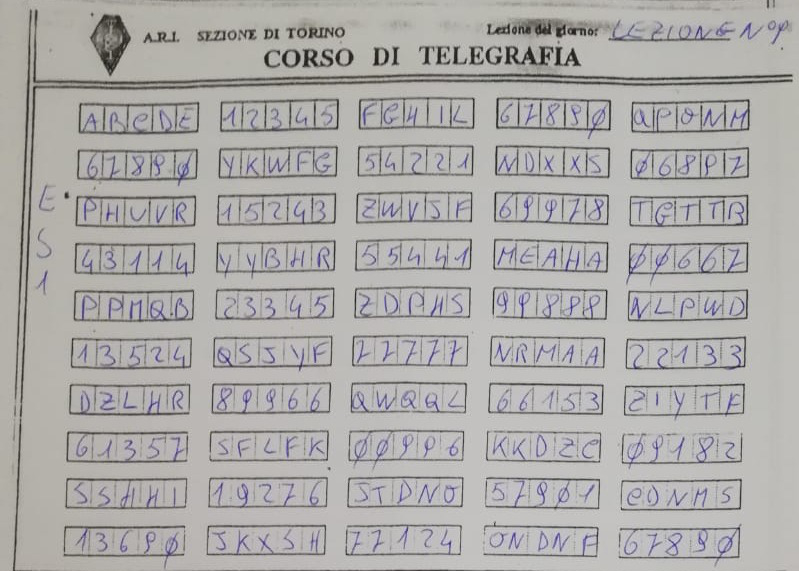 A.R.I. SEZIONE DI TORINO Lezione del giorno: LEZIONE N°9
CORSO DI TELEGRAFIA
ABCDE 12345 FGHIL 67890 QPONM
67890 YKWFG 54221 NDXXS 06897
ES1
PHUVR 15243 ZWVJF 69978 TGTTB
43114 YYBHR 55441 MEAHA 00667
PPMQB 23345 ZDPHS 99888 NLPWD
13524 QSJYF 77777 NRMAA 22133
DZLHR 89966 QWQQL 66153 ZIYTF
61357 SFLFK 00996 KKDZC 09182
SSHHI 19276 JTDNO 57901 CDNMS
13690 JKXSH 77124 ONDNF 67890